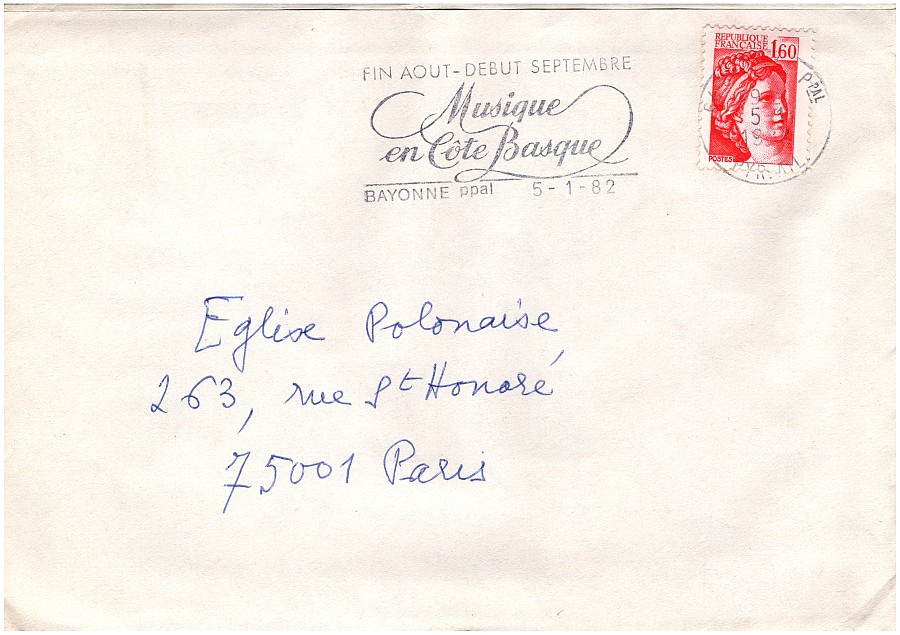 FIN AOUT-DEBUT SEPTEMBRE
Musique
en Côte Basque
BAYONNE ppal 5-1-82
REPUBLIQUE
FRANÇAISE 1,60
POSTES
PPAL
9
5
19
Eglise Polonaise
263, rue St Honoré
75001 Paris